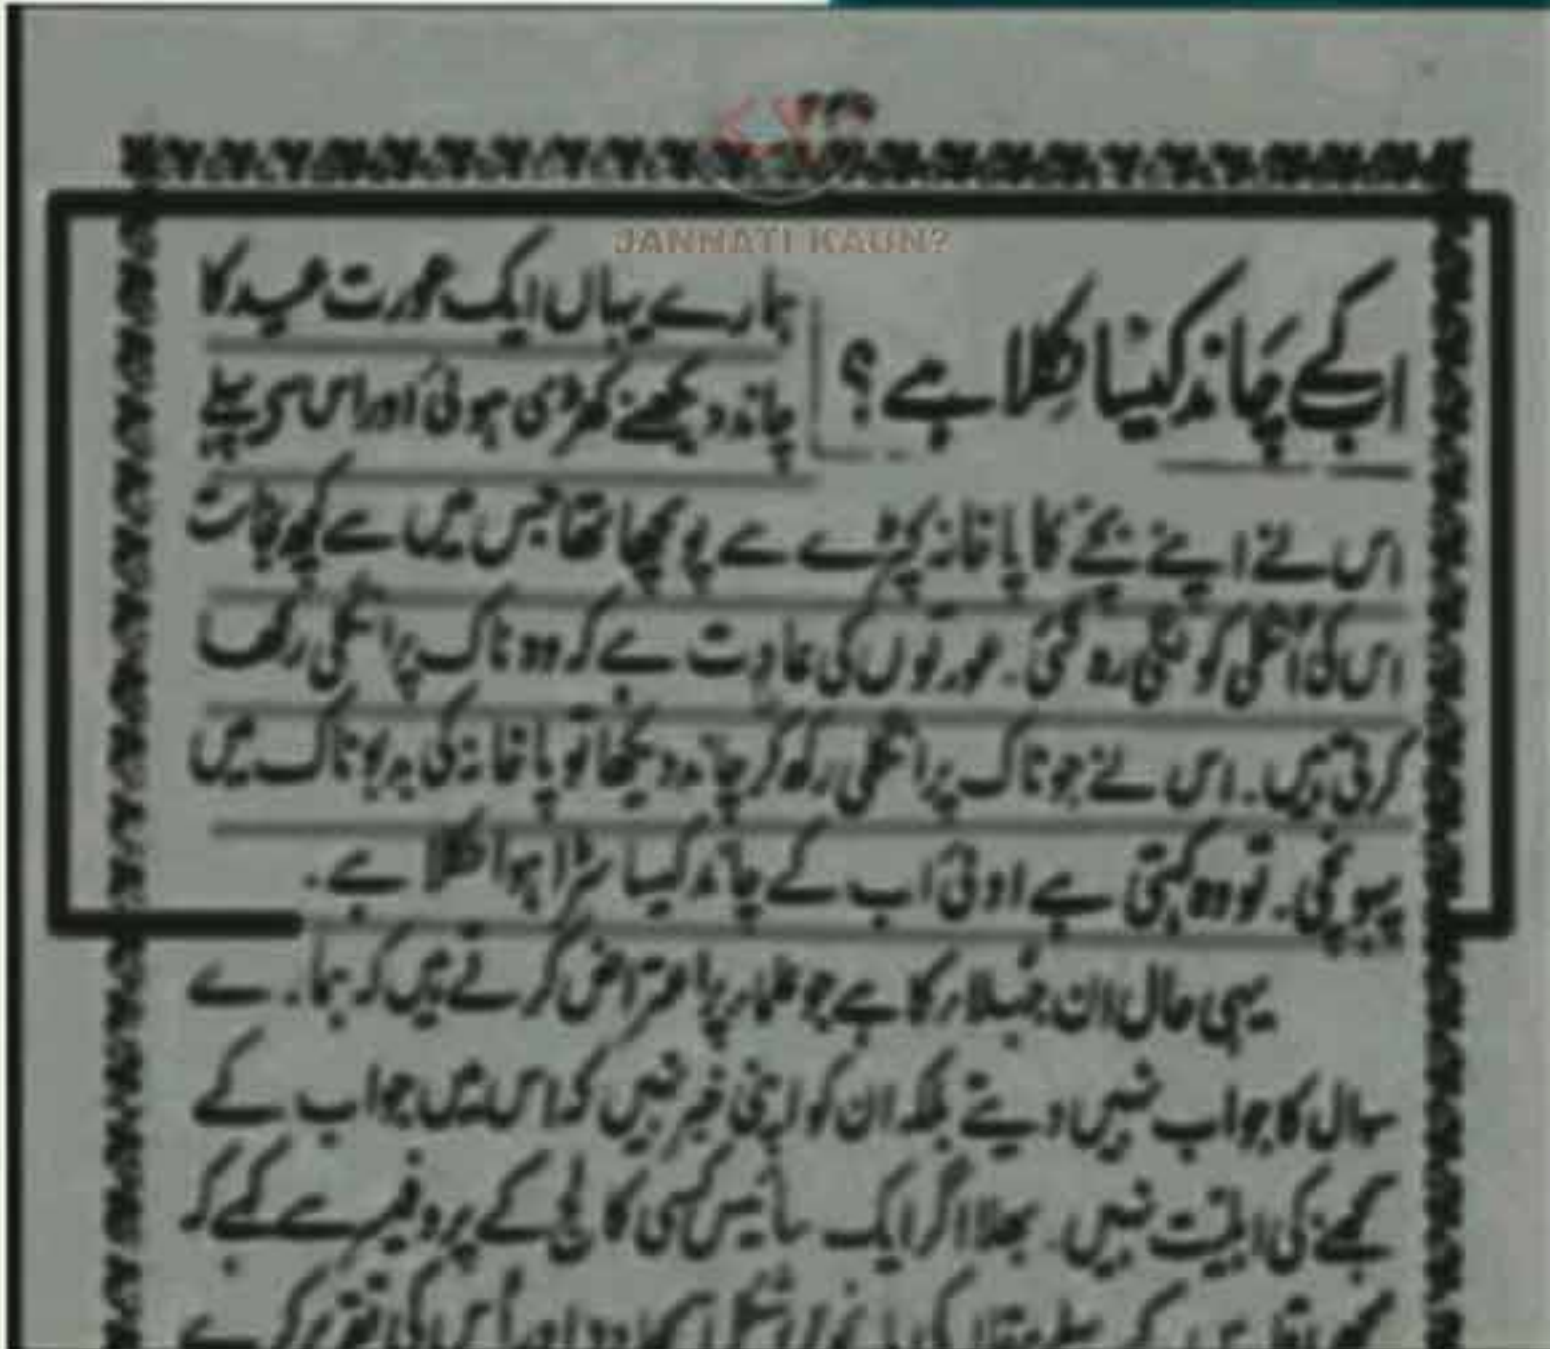 JANNATI KAUN?
ابکے چاند کیسا نکلا ہے؟
ہمارے یہاں ایک عورت عید کا
چاند دیکھنے کھڑی ہوئی اور اس سے پہلے
اس نے اپنے بچے کا پاخانہ کپڑے سے پونچھا تھا جس میں سے کچھ
اس کی انگلی کو لگی رہ گئی۔ عورتوں کی عادت ہے کہ وہ ناک پر انگلی رکھ
کرتی ہیں۔ اس نے جو ناک پر انگلی رکھ کر چاند دیکھا تو پاخانہ کی بدبو ناک میں
پہونچی۔ تو وہ کہتی ہے اوئی اب کے چاند کیسا سڑا ہوا نکلا ہے۔
یہی حال ان جہلاء کا ہے جو علماء پر اعتراض کرتے ہیں کہ ہمارے
سوال کا جواب نہیں دیتے بلکہ ان کو اپنی خبر نہیں کہ اس میں جواب کے
سمجھنے کی اہلیت نہیں۔ بھلا اگر ایک سائیس کسی کالج کے پروفیسر سے کہے کہ